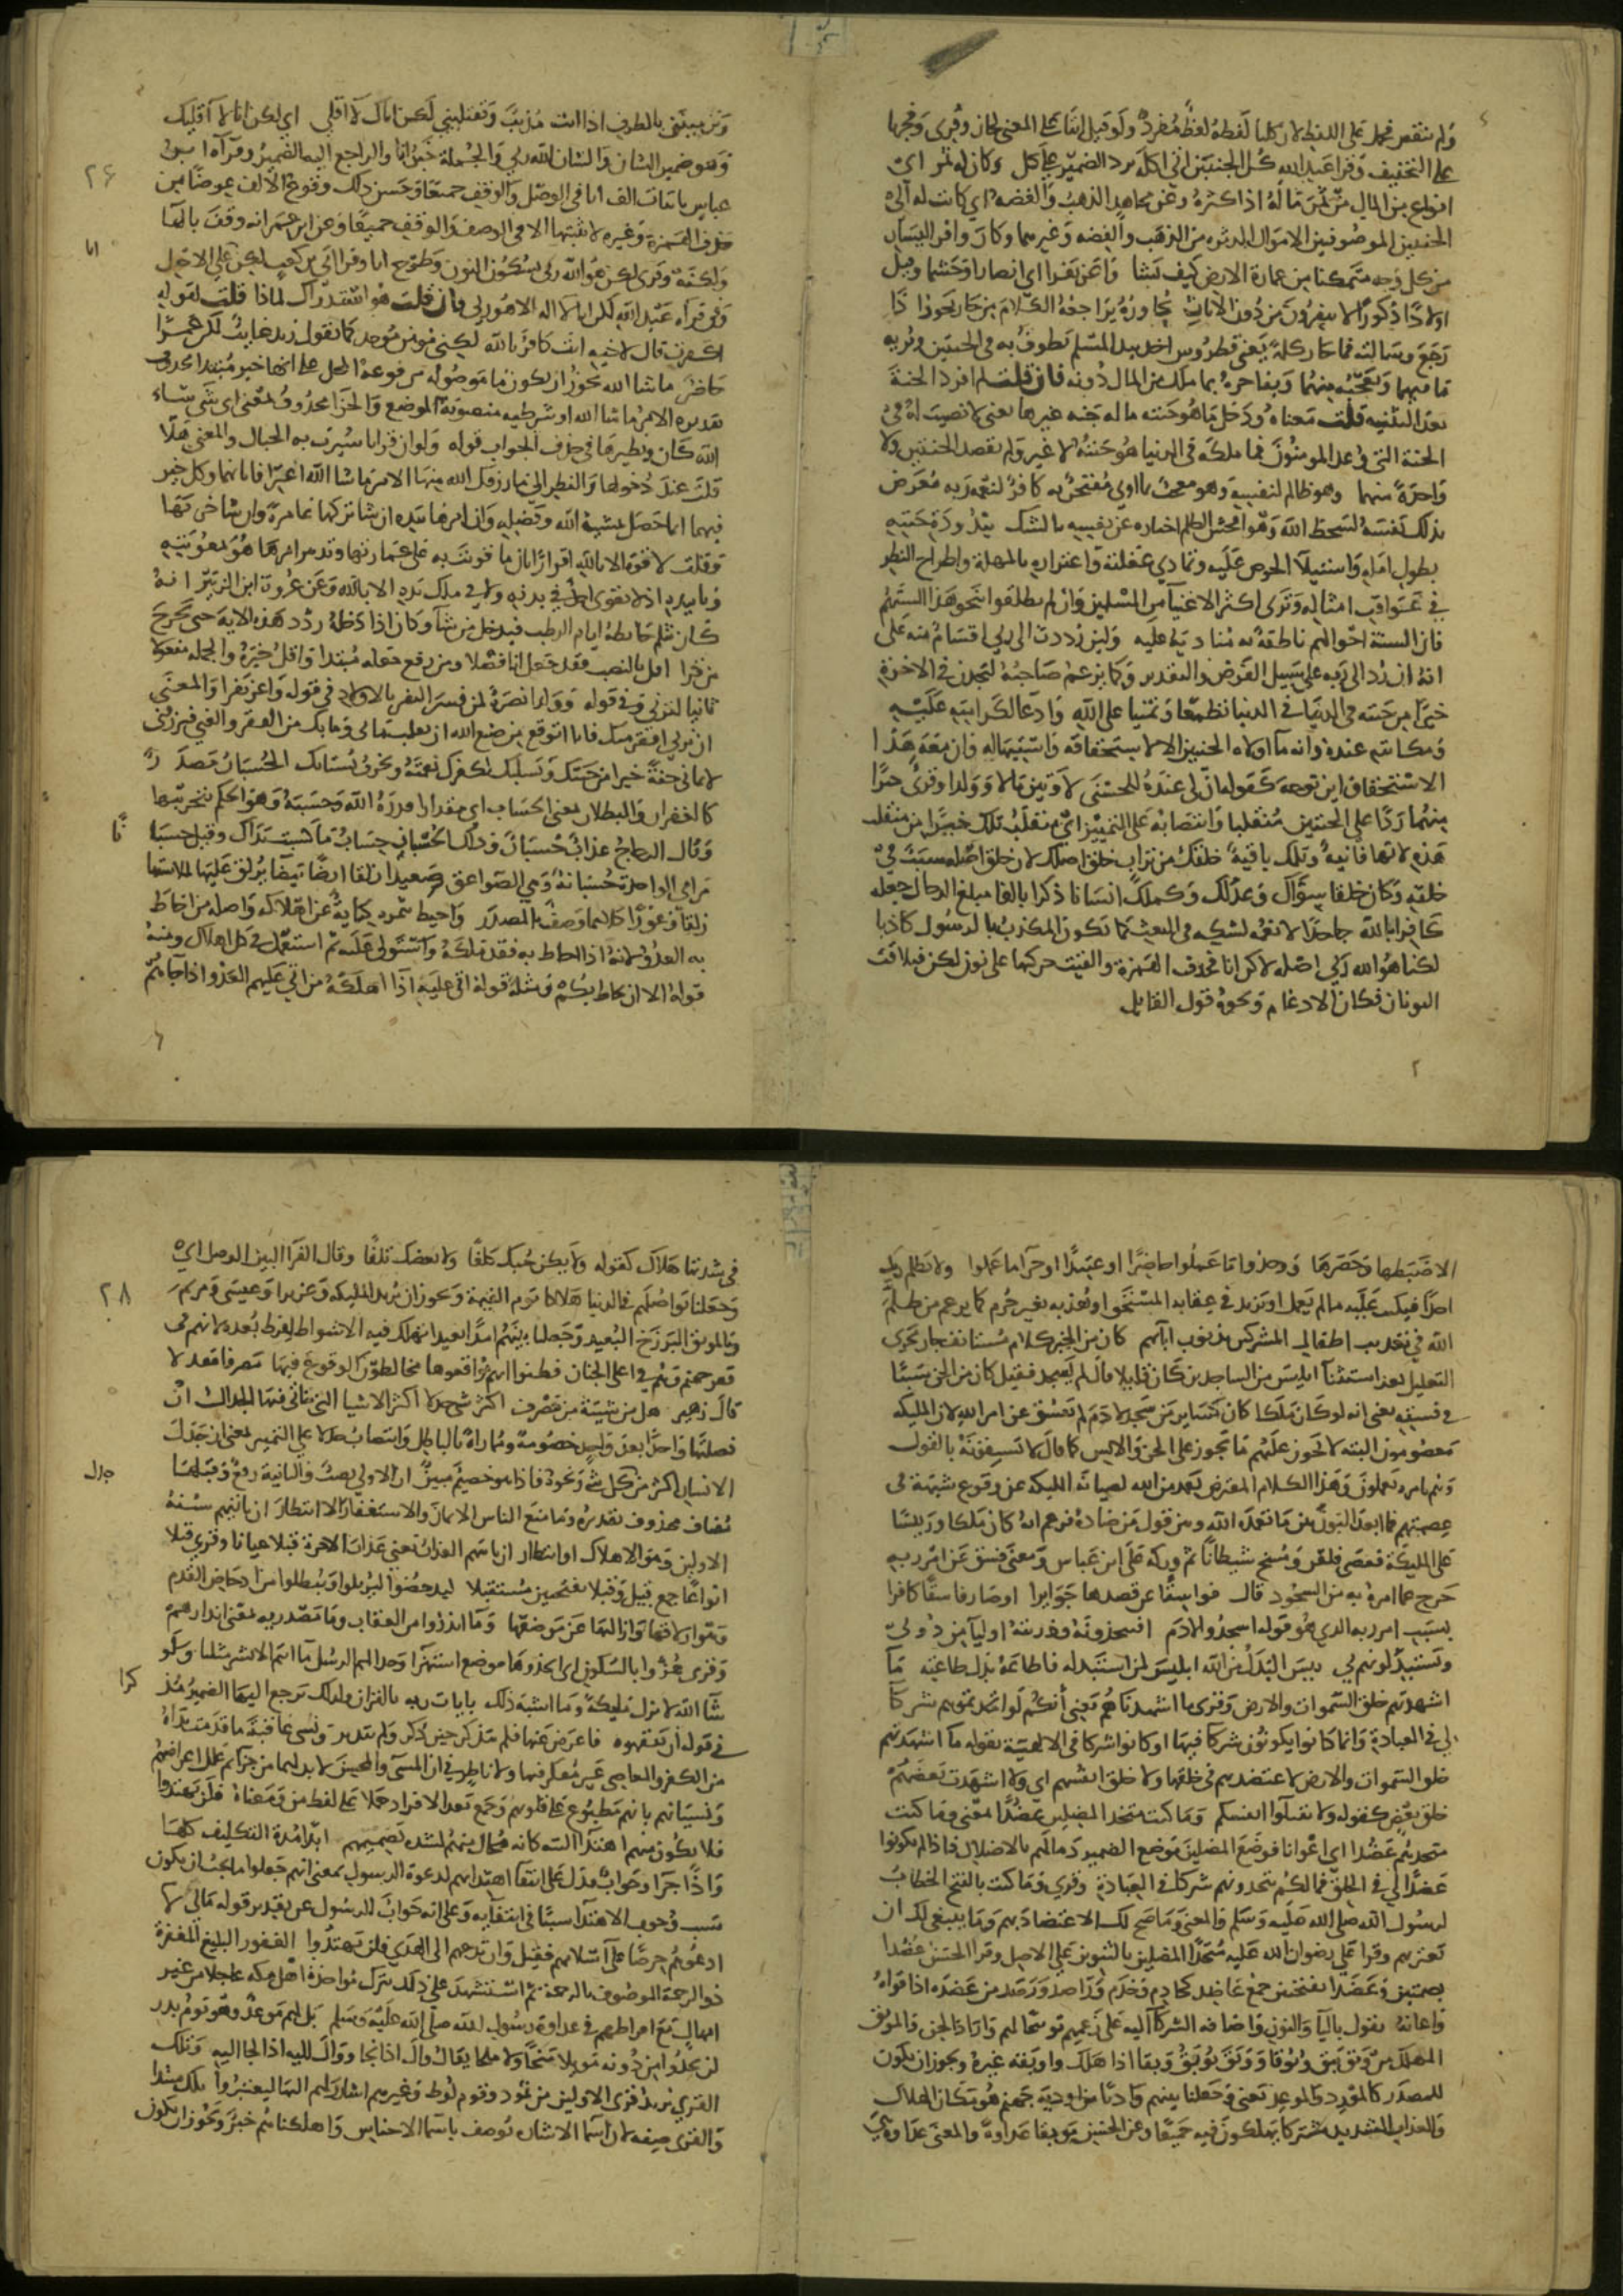 ولم تنقص فحمل على اللفظ لان كلتا لفظه لفظ مفرد ولو قيل اتتا على المعنى لجاز وقرى وفجرنا
على التخفيف وقرا عبد الله كل الجنتين اتى اكله برد الضمير على كل وكان له ثمر اى
انواع من المال من ثمر ماله اذا كثره وعن مجاهد الذهب والفضه اى كانت له الى
الجنتين الموصوفتين الاموال الدثره من الذهب والفضه وغيرهما وكان وافر اليسار
من كل وجه متمكنا من عمارة الارض كيف شا واعز نفرا اى انصارا وحشما وقيل
اولادا ذكورا لانهم ينفرون معه دون الاناث يحاوره يراجعه الكلام من حار يحور اذا
رجع وسالته فما حار كلمة يعنى قطروس اخذ بيد المسلم يطوف به فى الجنتين ويريه
ما فيهما ويعجبه منهما ويفاخره بما ملك من المال دونه فان قلت لم افرد الجنة
بعد التثنيه قلت معناه ودخل ما هو جنته ما له جنه غيرها يعنى لا نصيب له فى
الجنة التى وعد المومنون فما ملكه فى الدنيا هو جنته لا غير ولم يقصد الجنتين ولا
واحدة منهما وهو ظالم لنفسه وهو معجب بما اوتى مفتخر به كافر لنعمة ربه معرض
بذلك نفسه لسخط الله وهو افحش الظلم اخباره عن نفسه بالشك فى بيدودة جنته
بطول امله واستيلا الحرص عليه وتمادى غفلته واغتراره بالمهلة واطراح النظر
فى عواقب امثاله وترى اكثر الاغنيا من المسلمين وان لم يطلقوا نحو هذا السنتهم
فان السنة احوالهم ناطقة به منادية عليه ولئن رددت الى ربى اقسام منه على
انه ان رد الى ربه على سبيل الفرض والتقدير وكما يزعم صاحبه ليجدن فى الاخرة
خيرا من جنته فى الدنيا تطمعا وتمنيا على الله وادعا لكرامته عليه
ومكانته عنده وانه ما اولاه الجنتين الا لاستحقاقه واستيهاله وان معه هذا
الاستحقاق اين توجه كقوله ان لى عنده للحسنى لاوتين مالا وولدا وقرى خيرا
منهما ردا على الجنتين منقلبا وانتصابه على التمييز اى منقلب تلك خير من منقلب
هذه لانها فانية وتلك باقية خلقك من تراب خلق اصلك لان خلق اصله سبب فى
خلقه فكان خلقا سواك وعدلك وكملك انسانا ذكرا بالغا مبلغ الرجال جعله
كافرا بالله جاحدا لانعمه لشكه فى البعث كما يكون المكذب بالرسول كاذبا
لكنا هو الله ربى اصله لكن انا فحذف الهمزة والقيت حركتها على نون لكن فتلاقت
النونان فكان الادغام ونحوه قول القايل
وترميننى بالطرف اذا انت مذنب وتقلينى لكن اياك لا اقلى اى لكن انا لا اقليك
وهو ضمير الشان والشان لله ربى والجملة خبر انا والراجع اليه الضمير وقراه ابن
عباس باثبات الف انا فى الوصل والوقف جميعا وحسن ذلك وقوع الالف عوضا من
حذف الهمزة وغيره لا يثبتها الا فى الوقف وعن ابى عمر انه وقف بالها
انا
ولكنه وقرى لكن هو الله ربى بسكون النون وطرح انا وقرا ابى بن كعب لكن انا على الاصل
وفى قراه عبد الله لكن انا لا اله الا هو ربى فان قلت هو استدراك لماذا قلت لقوله
اكفرت قال لاخيه انت كافر بالله لكنى مومن موحد كما تقول زيد غايب لكن عمرا
حاضر ما شا الله يجوز ان تكون ما موصوله مرفوعة المحل على انها خبر مبتدا محذوف
تقديره الامر ما شا الله او شرطيه منصوبة الموضع والجزا محذوف بمعنى اى شى شاء
الله كان ونظيرها فى حذف الجواب قوله ولو ان قرانا سيرت به الجبال والمعنى هلا
قلت عند دخولها والنظر الى ما رزقك الله منها الامر ما شا الله اعترافا بانها وكل خير
فيها انما حصل بمشيه الله وفضله وان امرها بيده ان شا تركها عامرة وان شا خربها
وقلت لا قوة الا بالله اقرارا بان ما قويت به على عمارتها وتدبير امرها هو بمعونته
وتاييده اذ لا يقوى احد فى بدنه ولا فى ملك يده الا بالله وعن عروة ابن الزبير انه
كان يثلم حايطه ايام الرطب فيدخل من شا وكان اذا دخله ردد هذه الايه حتى يخرج
من قرا اقل بالنصب فقد جعل انا فصلا ومن رفع جعله مبتدا واقل خبره والجملة مفعولا
ثانيا لترنى وفى قوله وولدا نصرة لمن فسر النفر بالاولاد فى قوله واعز نفرا والمعنى
ان ترنى افقر منك فانا اتوقع من صنع الله ان يقلب ما بى وما بك من الفقر والغنى فيرزقنى
لايمانى جنة خيرا من جنتك ويسلبك لكفرك نعمته ويخرب بستانك الحسبان مصدر
كالغفران والبطلان بمعنى الحساب اى مقدارا قدره الله وحسبه وهو الحكم بتخريبها
وقال الزجاج عذاب حسبان وذلك الحسبان حساب ما كسبت يداك وقيل حسبانا
مرامى الواحدة حسبانة وهى الصواعق صعيدا زلقا ارضا بيضا يزلق عليها لملاستها
زلقا وغورا كلاهما وصف بالمصدر واحيط بثمره كناية عن اهلاكه واصله من احاط
به العدو لانه اذا احاط به فقد ملكه واستولى عليه ثم استعمل فى كل اهلاك ومنه
قوله الا ان يحاط بكم ومثله قوله اتى عليه اذا اهلكه من اتى عليهم العدو اذا جاهم
٢٨
الا ضبطها وحصرها ووجدوا ما عملوا حاضرا او عتيدا او جزا ما عملوا ولا يظلم ربك
احدا فيكتب عليه ما لم يعمل او يزيد فى عقابه المستحق او يعذبه بغير جرم كما يزعم من ظلم
الله فى تعذيب اطفال المشركين بذنوب ابآيهم كان من الجن كلام مستانف جار مجرى
التعليل بعد استثنآ ابليس من الساجدين كان قايلا قال ما له لم يسجد فقيل كان من الجن سببا
فى فسقه يعنى انه لو كان ملكا كان كساير من سجد لادم لم يفسق عن امر الله لان المليكه
معصومون البته لا يجوز عليهم ما يجوز على الجن والانس كما قال لا يسبقونه بالقول
وهم بامره يعملون وهذا الكلام المعترض تعمد من الله لصيانة المليكه عن وقوع شبهة فى
عصمتهم فما ابعد البون بين ما تعمده الله وبين قول من ضاده فزعم انه كان ملكا ورييسا
على المليكة فعصى فلعن ومسخ شيطانا ثم وركه على ابن عباس ومعنى فسق عن امر ربه
خرج عما امره به من السجود قال فواسقا عن قصدها جوايرا او صار فاسقا كافرا
بسبب امر ربه الذى هو قوله اسجدوا لادم افتتخذونه وذريته اوليآ من دونى
وتستبدلونهم بى بيس البدل من الله ابليس لمن استبدله فاطاعه بدل طاعته ما
اشهدتهم خلق السموات والارض وقرى ما اشهدناهم يعنى أنكم اتخذتموهم شركآ
لى فى العبادة وانما كانوا يكونون شركآ فيها لو كانوا شركا فى الالهية بقوله ما اشهدتهم
خلق السموات والارض لاعتضد بهم فى خلقها ولا خلق انفسهم اى ولا اشهدت بعضهم
خلق بعض كقوله ولا تقتلوا انفسكم وما كنت متخذ المضلين عضدا بمعنى وما كنت
متخذهم عضدا اى اعوانا فوضع المضلين موضع الضمير ذما لهم بالاضلال فاذا لم يكونوا
عضدا لى فى الخلق فما لكم تتخذونهم شركا لى فى العبادة وقرى وما كنت بالفتح الخطاب
لرسول الله صلى الله عليه وسلم والمعنى وما صح لك الاعتضاد بهم وما ينبغى لك ان
تعتز بهم وقرا على رضوان الله عليه متخذا المضلين بالتنوين على الاصل وقرا الحسن عضدا
بضمتين وعضدا بفتحتين جمع عاضد كخادم وخدم وراصد ورصد من عضده اذا قواه
واعانه يقول باليآ والنون واضافه الشركآ اليه على زعمهم توبيخا لهم واراد الجن والموبق
المهلك من وبق يبق وبوقا ووبق يوبق وبقا اذا هلك واوبقه غيره ويجوز ان يكون
للمصدر كالمورد والموعد يعنى وجعلنا بينهم واديا من اودية جهنم هو مكان الهلاك
والعذاب الشديد مشتركا يهلكون فيه جميعا وعن الحسن موبقا عداوة والمعنى عداوة هى
فى شدتها هلاك كقوله ولا يكن حبك كلفا ولا بغضك تلفا وقال الفرا البين الوصل اى
وجعلنا تواصلهم فى الدنيا هلاكا يوم القيمة ويجوز ان يريد المليكه وعزيرا وعيسى ومريم
وبالموبق البرزخ البعيد وجعلنا بينهم امدا بعيدا تهلك فيه الاشواط لفرط بعده لانهم فى
قعر جهنم وهم فى اعلى الجنان فظنوا انهم مواقعوها مخالطوها الوقوع فيها مصرفا معدلا
قال زهير هل من شيبة من مصرف اكثر شى جدلا اكثر الاشيا التى يتاتى منها الجدال ان
فصلتها واحدا بعد واحد خصومة ومماراة بالباطل وانتصاب جدلا على التمييز يعنى ان جدل
جدل
الانسان اكثر من كل شى ونحوه فاذا هو خصيم مبين ان الاولى نصب والثانية رفع وقبلها
مضاف محذوف تقديره وما منع الناس الايمان والاستغفار الا انتظار ان تاتيهم سنة
الاولين وهو الاهلاك او انتظار ان ياتيهم العذاب يعنى عذاب الاخرة قبلا عيانا وقرى قبلا
انواعا جمع قبيل وقبلا بفتحتين مستقبلا ليدحضوا ليزيلوا ويبطلوا من ادحاض القدم
وهو ازلاقها وازالتها عن موضعها وما انذروا من العقاب وما مصدريه بمعنى انذارهم
وقرى هزوا بالسكون اى اتخذوها موضع استهزا وجدالهم الرسل ما انتم الا بشر مثلنا ولو
شآ الله لانزل مليكة وما اشبه ذلك بايات ربه بالقران ولذلك رجع اليها الضمير مذكرا
فى قوله أن يفقهوه فاعرض عنها فلم يتذكر حين ذكر ولم يتدبر ونسى عاقبة ما قدمت يداه
من الكفر والمعاصى غير مفكر فيها ولا ناظر فى ان المسى والمحسن لا بد لهما من جزا ثم علل اعراضهم
ونسيانهم بانهم مطبوع على قلوبهم وجمع بعد الافراد حملا على لفظ من ومعناه فلن يهتدوا
فلا يكون منهم اهتدآ البته كانه محال منهم لشدة تصميمهم ابدا مدة التكليف كلها
واذا جزا وجواب فدل على انتفا اهتدايهم لدعوة الرسول بمعنى انهم جعلوا ما يجب ان يكون
سبب وجود الاهتدآ سببا فى انتفايه وعلى انه جواب للرسول عن تقدير قوله مالى لا
ادعوهم حرصا على اسلامهم فقيل وان تدعهم الى الهدى فلن يهتدوا الغفور البليغ المغفرة
ذو الرحمة الموصوف بالرحمة ثم استشهد على ذلك بترك مواخذة اهل مكه عاجلا من غير
امهال مع افراطهم فى عداوة رسول لله صلى الله عليه وسلم بل لهم موعد وهو يوم بدر
لن يجدوا من دونه مويلا منجا ولا ملجا يقال وال اذا نجا ووال اليه اذا لجا اليه وتلك
القرى يريد قرى الاولين من ثمود وقوم لوط وغيرهم اشار لهم اليها ليعتبروا تلك مبتدا
والقرى صفه لان اسما الاشاره توصف باسما الاجناس واهلكناهم خبر ويجوز ان يكون